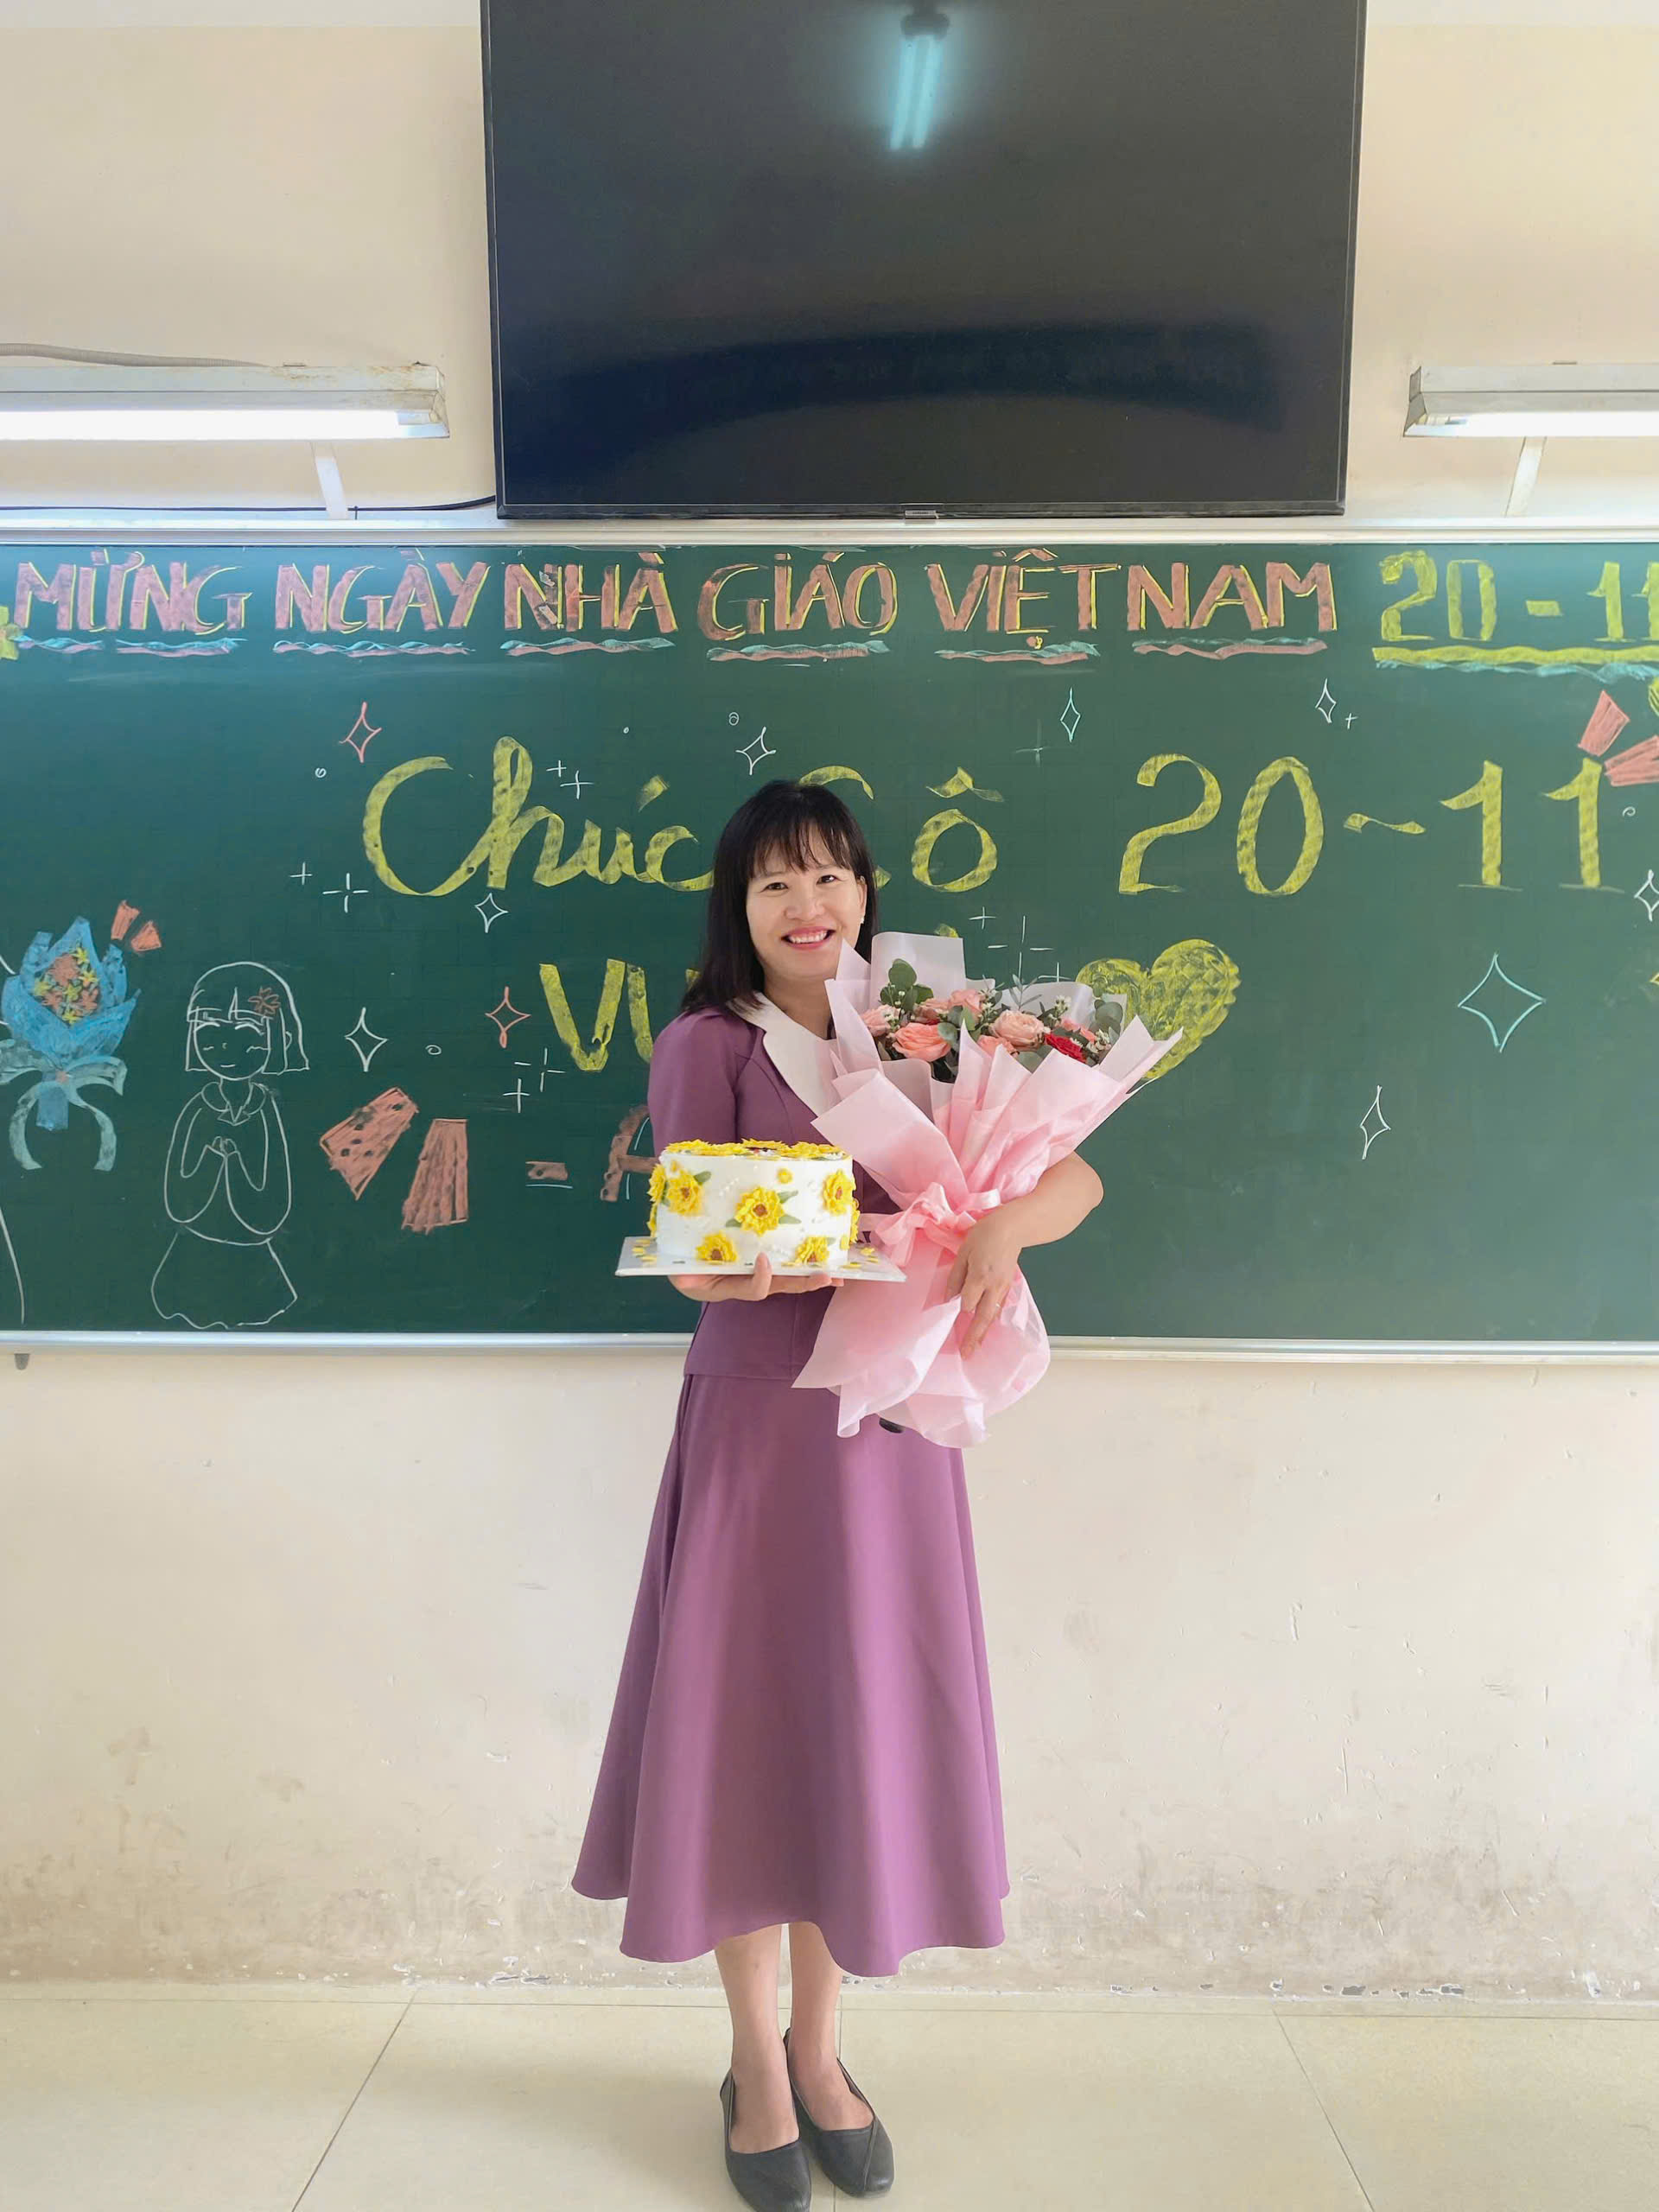 MỪNG NGÀY NHÀ GIÁO VIỆT NAM 20-11
Chúc Cô 20~11